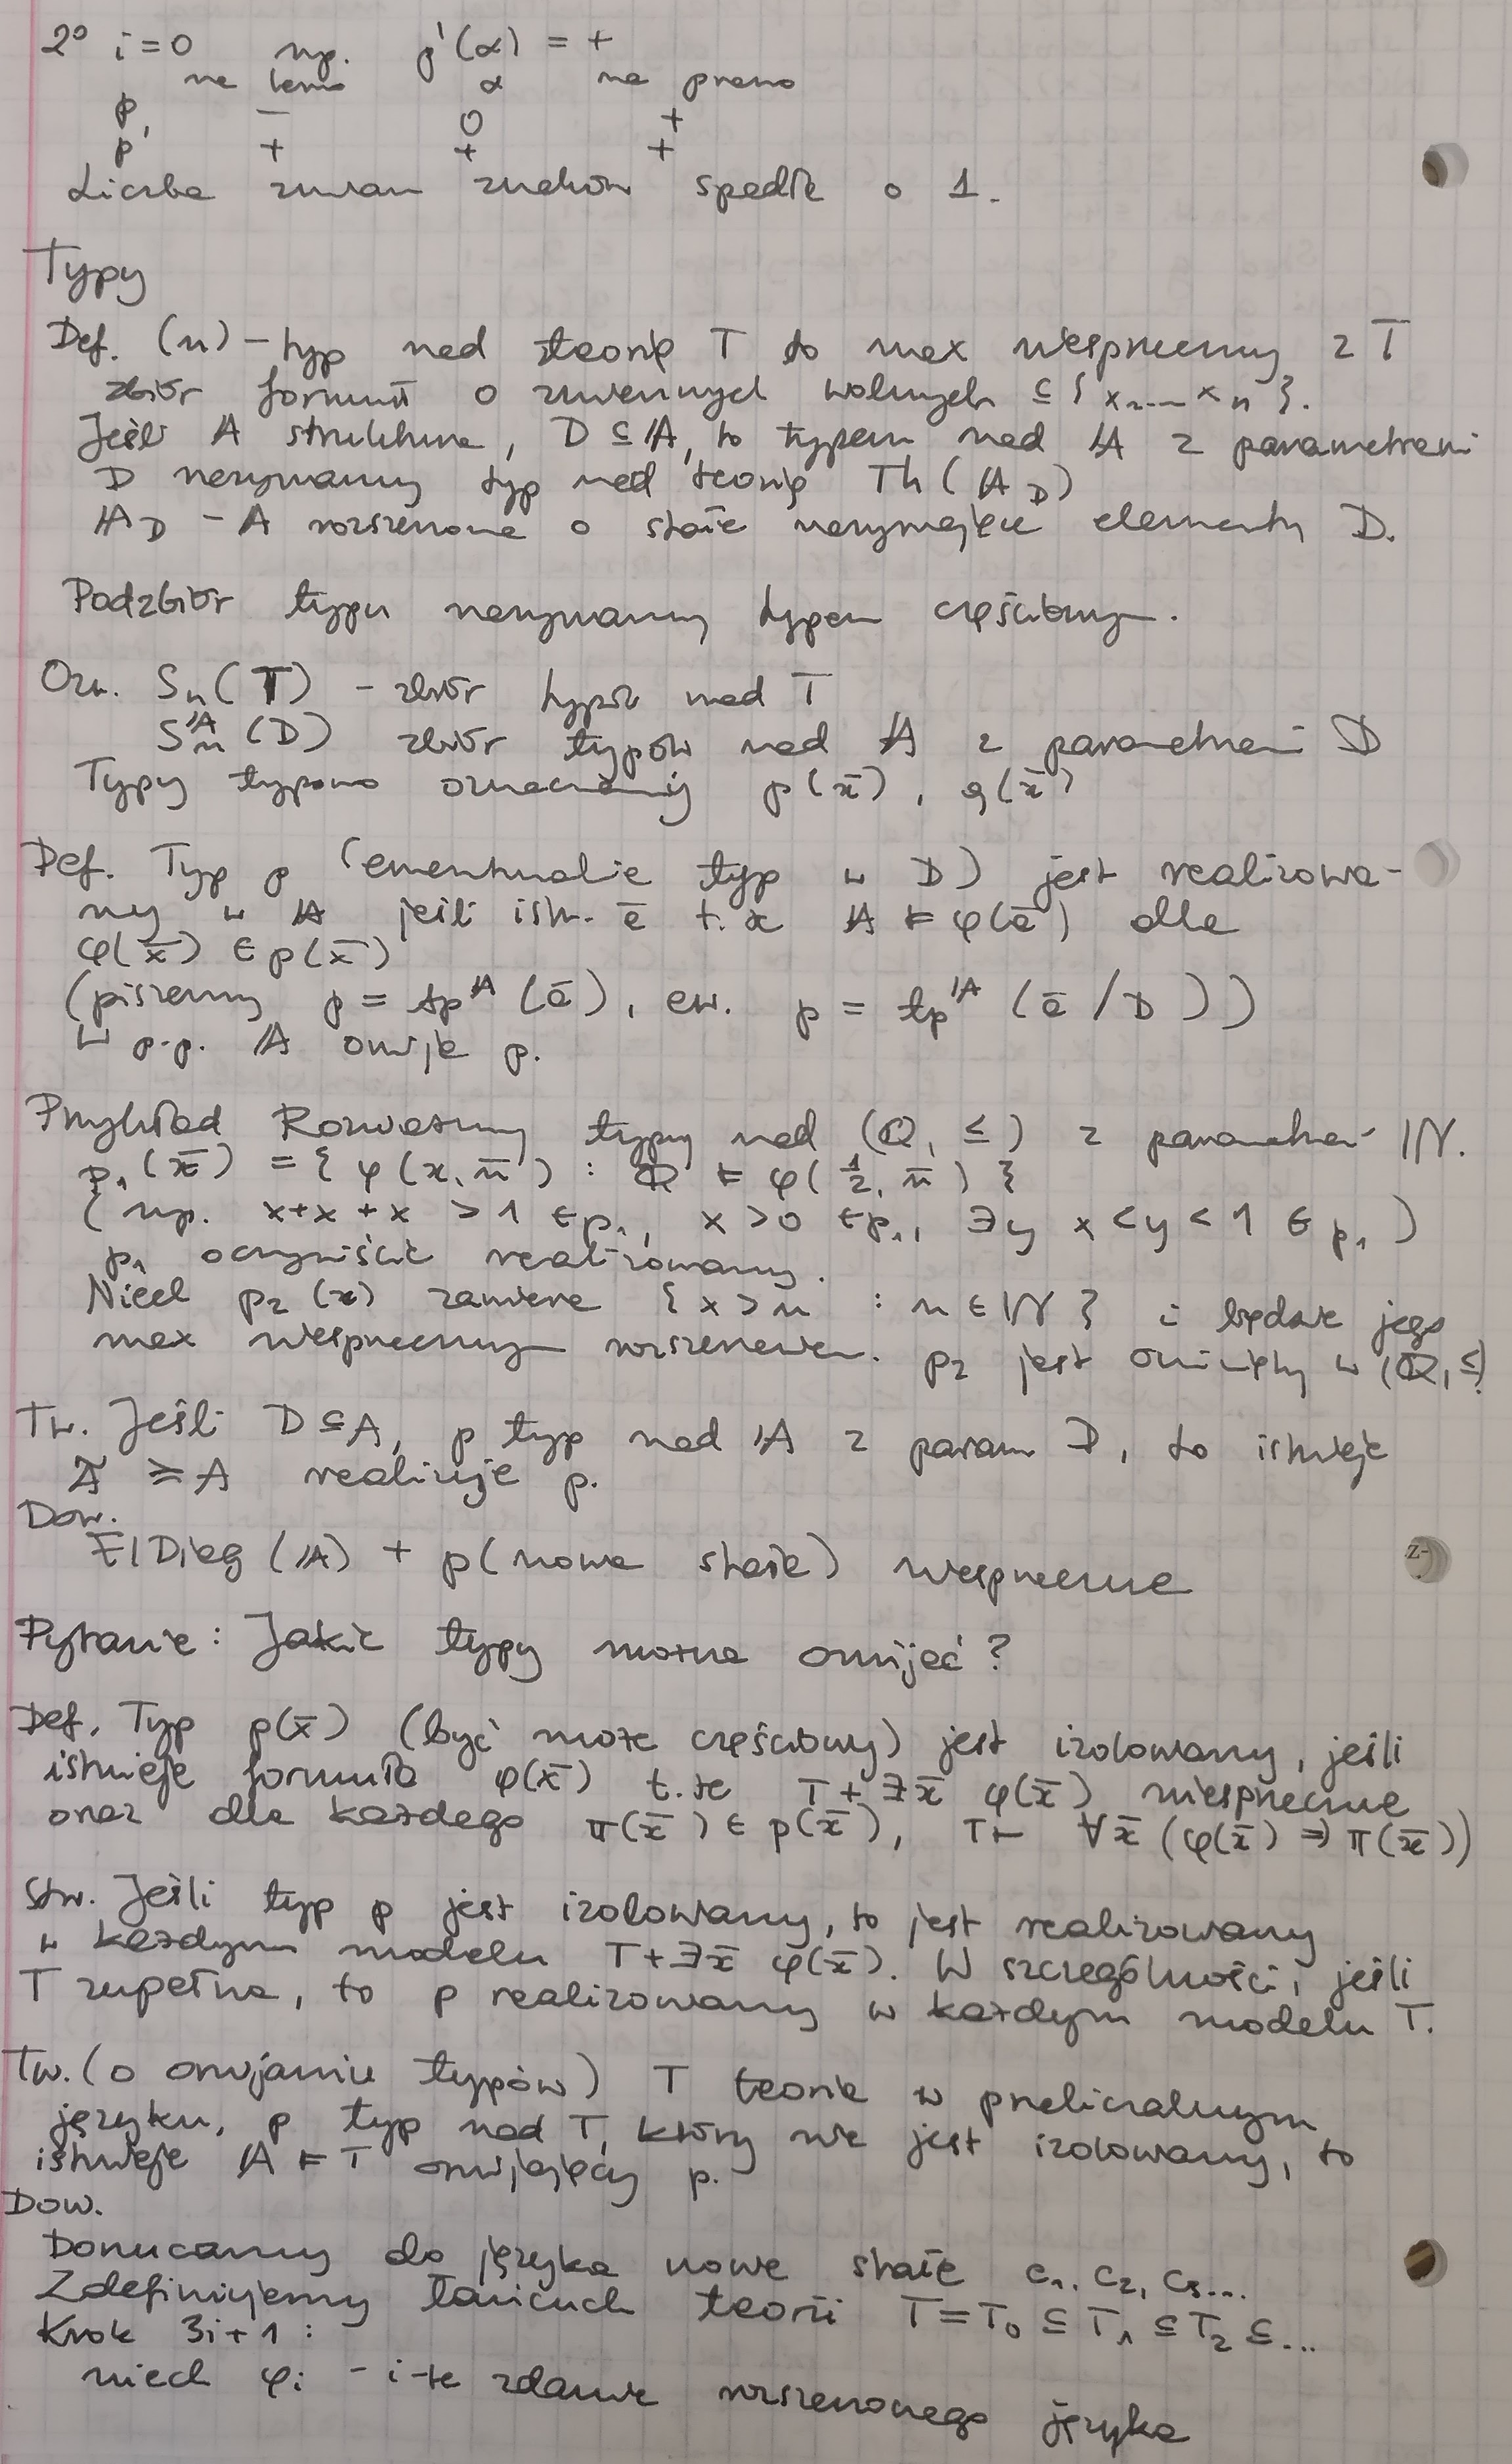 2° i=0 np. p'(α) = +
na lewo α na prawo
p − 0 +
p' + + +
Liczba zmian znaków spadła o 1.
Typy
Def. (n)-typ nad teorią T to max niesprzeczny z T
zbiór formuł o zmiennych wolnych ⊆ {x₁...xₙ}.
Jeśli 𝔸 struktura, D ⊆ 𝔸, to typem nad 𝔸 z parametrami
D nazywamy typ nad teorią Th(𝔸_D)
𝔸_D - A rozszerzone o stałe nazywające elementy D.
Podzbiór typu nazywamy typem częściowym.
Ozn. Sₙ(T) - zbiór typów nad T
Sₙ^𝔸(D) zbiór typów nad 𝔸 z parametrami D
Typy typowo oznaczamy p(x̄), q(x̄)
Def. Typ p (ewentualnie typ w D) jest realizowa-
ny w 𝔸 jeśli istn. ā t.że 𝔸 ⊨ φ(ā) dla
φ(x̄) ∈ p(x̄)
(piszemy p = tp^𝔸(ā), ew. p = tp^𝔸(ā/D))
W p.p. 𝔸 omija p.
Przykład Rozważmy typy nad (ℚ, ≤) z parametrami ℕ.
p₁(x̄) = {φ(x, n̄) : ℚ ⊨ φ(½, n̄)}
(np. x+x+x > 1 ∈ p₁, x > 0 ∈ p₁, ∃y x < y < 1 ∈ p₁)
p₁ oczywiście realizowany.
Niech p₂(x) zawiera {x > n : n ∈ ℕ} i będzie jego
max niesprzecznym rozszerzeniem. p₂ jest ominięty w (ℚ, ≤)
Tw. Jeśli D ⊆ A, p typ nad 𝔸 z param D, to istnieje
Ã ≽ A realizuje p.
Dow.
ElDiag(𝔸) + p(nowe stałe) niesprzeczne
Pytanie: Jakie typy można omijać?
Def. Typ p(x̄) (być może częściowy) jest izolowany, jeśli
istnieje formuła φ(x̄) t.że T + ∃x̄ φ(x̄) niesprzeczne
oraz dla każdego π(x̄) ∈ p(x̄), T ⊢ ∀x̄ (φ(x̄) ⇒ π(x̄))
Stw. Jeśli typ p jest izolowany, to jest realizowany
w każdym modelu T + ∃x̄ φ(x̄). W szczególności, jeśli
T zupełna, to p realizowany w każdym modelu T.
Tw. (o omijaniu typów) T teoria w przeliczalnym
języku, p typ nad T, który nie jest izolowany, to
istnieje 𝔸 ⊨ T omijający p.
Dow.
Dorzucamy do języka nowe stałe c₁, c₂, c₃...
Zdefiniujemy łańcuch teorii T = T₀ ⊆ T₁ ⊆ T₂ ⊆ ...
Krok 3i+1:
niech φᵢ - i-te zdanie rozszerzonego języka